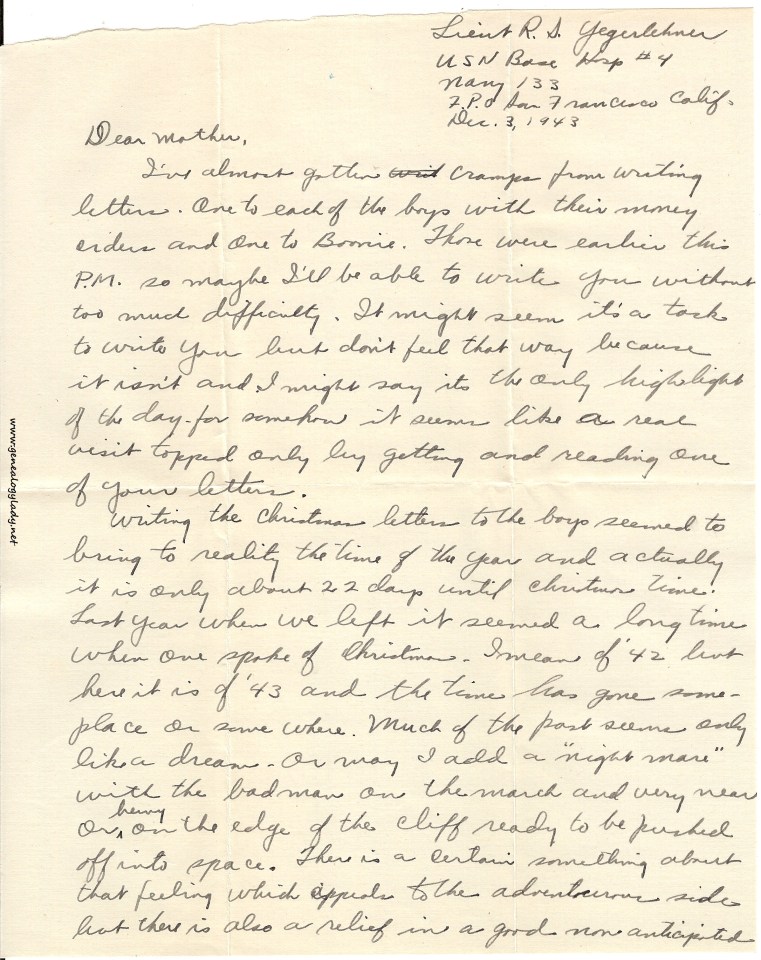 Lieut R. S. Yegerlehner
USN Base Hosp #4
Navy 133
F.P.O San Francisco Calif.
Dec. 3, 1943
Dear Mother,
I've almost gotten cramps from writing
letters. One to each of the boys with their money
orders and one to Boonie. Those were earlier this
P.M. so maybe I'll be able to write you without
too much difficulty. It might seem it's a task
to write you but don't feel that way because
it isn't and I might say its the only highlight
of the day - for somehow it seems like a real
visit topped only by getting and reading one
of your letters.
Writing the Christmas letters to the boys seemed to
bring to reality the time of the year and actually
it is only about 22 days until Christmas time.
Last year when we left it seemed a long time
when one spoke of Christmas - I mean of '42 but
here it is of '43 and the time has gone some-
place or some where. Much of the past seems only
like a dream - Or may I add a "night mare"
with the badman on the march and very near
or, being on the edge of the cliff ready to be pushed
off into space. There is a certain something about
that feeling which appeals to the adventurous side
but there is also a relief in a good non anticipated
www.genealogylady.net